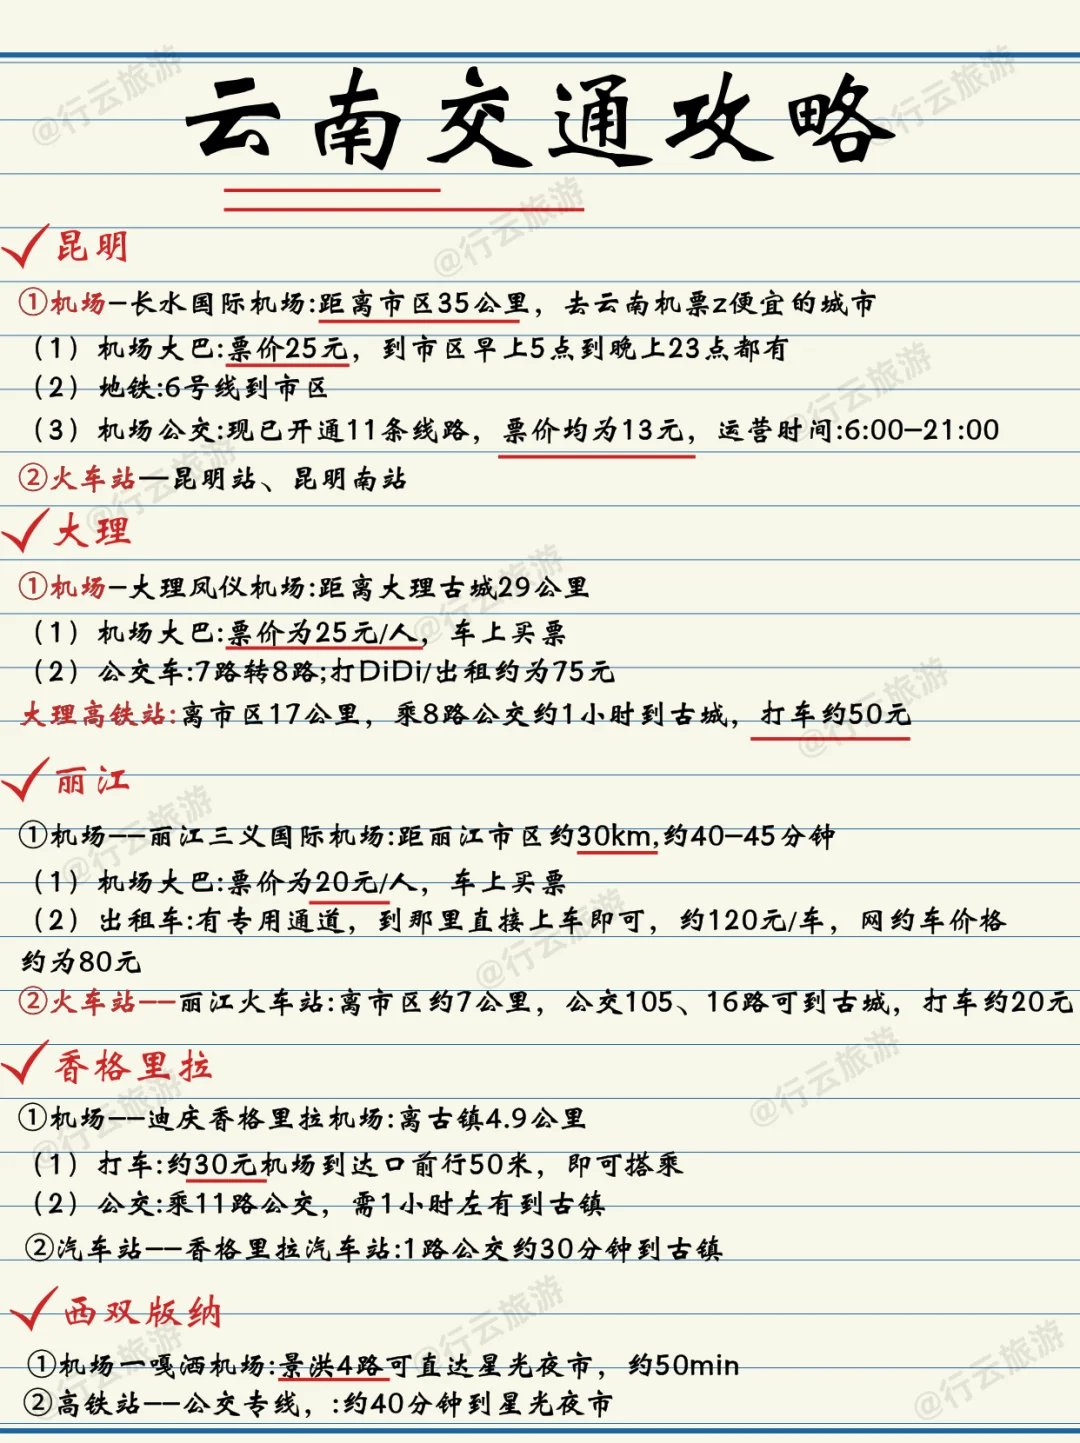 云南交通攻略
昆明
①机场-长水国际机场:距离市区35公里，去云南机票z便宜的城市
（1）机场大巴:票价25元，到市区早上5点到晚上23点都有
（2）地铁:6号线到市区
（3）机场公交:现已开通11条线路，票价均为13元，运营时间:6:00-21:00
②火车站—昆明站、昆明南站
大理
①机场-大理凤仪机场:距离大理古城29公里
（1）机场大巴:票价为25元/人，车上买票
（2）公交车:7路转8路;打DiDi/出租约为75元
大理高铁站:离市区17公里，乘8路公交约1小时到古城，打车约50元
丽江
①机场--丽江三义国际机场:距丽江市区约30km,约40-45分钟
（1）机场大巴:票价为20元/人，车上买票
（2）出租车:有专用通道，到那里直接上车即可，约120元/车，网约车价格
约为80元
②火车站--丽江火车站:离市区约7公里，公交105、16路可到古城，打车约20元
香格里拉
①机场--迪庆香格里拉机场:离古镇4.9公里
（1）打车:约30元机场到达口前行50米，即可搭乘
（2）公交:乘11路公交，需1小时左有到古镇
②汽车站--香格里拉汽车站:1路公交约30分钟到古镇
西双版纳
①机场一嘎洒机场:景洪4路可直达星光夜市，约50min
②高铁站--公交专线，:约40分钟到星光夜市
@行云旅游
@行云旅游
@行云旅游
@行云旅游
@行云旅游
@行云旅游
@行云旅游
@行云旅游
@行云旅游
@行云旅游
@行云旅游
@行云旅游
@行云旅游
@行云旅游